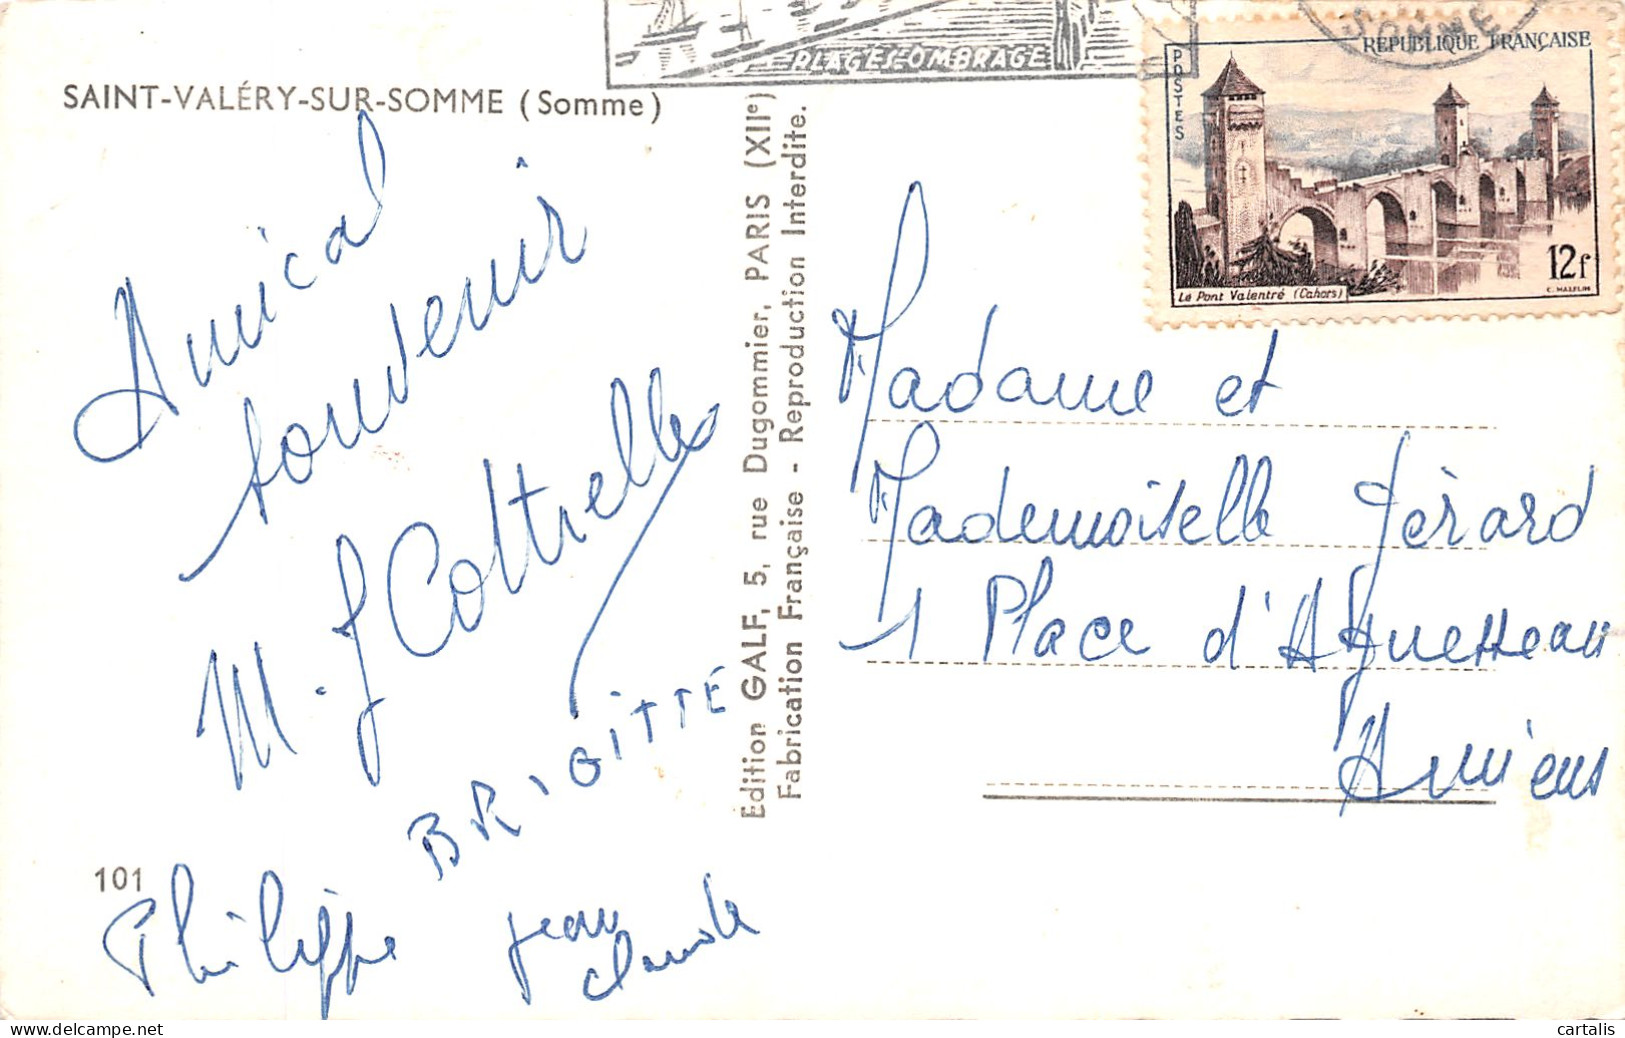 PLAGES-OMBRAGE
SOMME
SAINT-VALÉRY-SUR-SOMME (Somme)
RÉPUBLIQUE FRANÇAISE
POSTES
12f
Le Pont Valentré (Cahors)
Amical
souvenir
M. J Cottrelle
BRIGITTE
Philippe
Jean
Claude
101
Édition GALF, 5, rue Dugommier, PARIS (XIIe)
Fabrication Française - Reproduction Interdite.
Madame et
Mademoiselle Gérard
1 Place d'Aguesseau
Amiens
cartalis